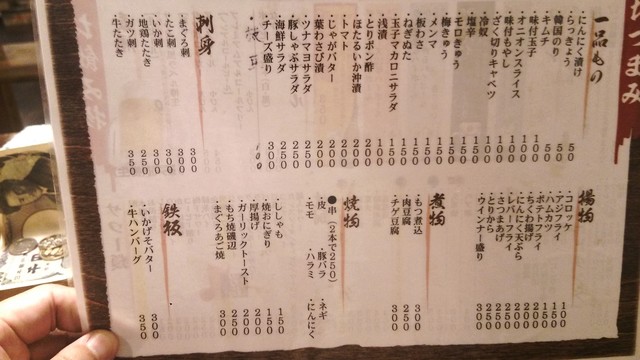 おつまみ
一品もの
・にんにく漬け 50
・らっきょう 50
・韓国のり 50
・キムチ 100
・味付玉子 100
・オニオンスライス 100
・味付もやし 100
・ざく切りキャベツ 100
・冷奴 100
・塩辛 150
・モロきゅう 150
・梅きゅう 150
・メンマ 150
・板わさ 150
・ねぎぬた 150
・玉子マカロニサラダ 150
・浅漬 150
・とりポン酢 200
・ほたるいか沖漬 200
・トマト 200
・じゃがバター 200
・葉わさび漬 200
・ツナマヨサラダ 250
・豚しゃぶサラダ 250
・海鮮サラダ 250
・チーズ盛り 300
刺身
・まぐろ刺 300
・たこ刺 300
・いか刺 300
・地鶏たたき 300
・ガツ刺 250
・牛たたき 350
揚物
・コロッケ 100
・アジフライ 150
・ハムカツ 150
・ポテトフライ 200
・ちくわ揚げ 200
・にんにく天ぷら 250
・レバーフライ 250
・さつまあげ 250
・とりから 250
・ウインナー盛り 300
煮物
・もつ煮込 300
・肉豆腐 250
・チゲ豆腐 300
焼物
●串(2本で250)
・皮 ・豚バラ ・ネギ
・モモ ・ハラミ ・にんにく
・ししゃも 150
・焼おにぎり 150
・厚揚げ 200
・ガーリックトースト 200
・もち焼磯辺 250
・まぐろあご焼 300
鉄板
・いかげそバター 350
・牛ハンバーグ 350